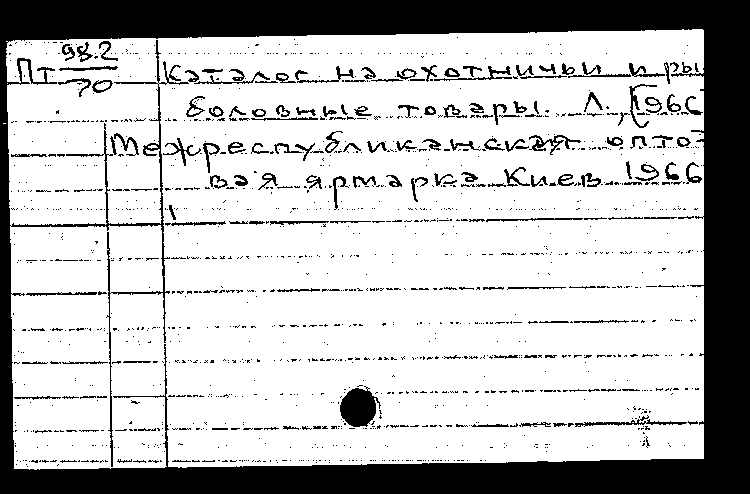 Пт 98.2/70
Каталог на охотничьи и ры
боловные товары. Л., [1966
Межреспубликанская опто-
вая ярмарка Киев 1966
1